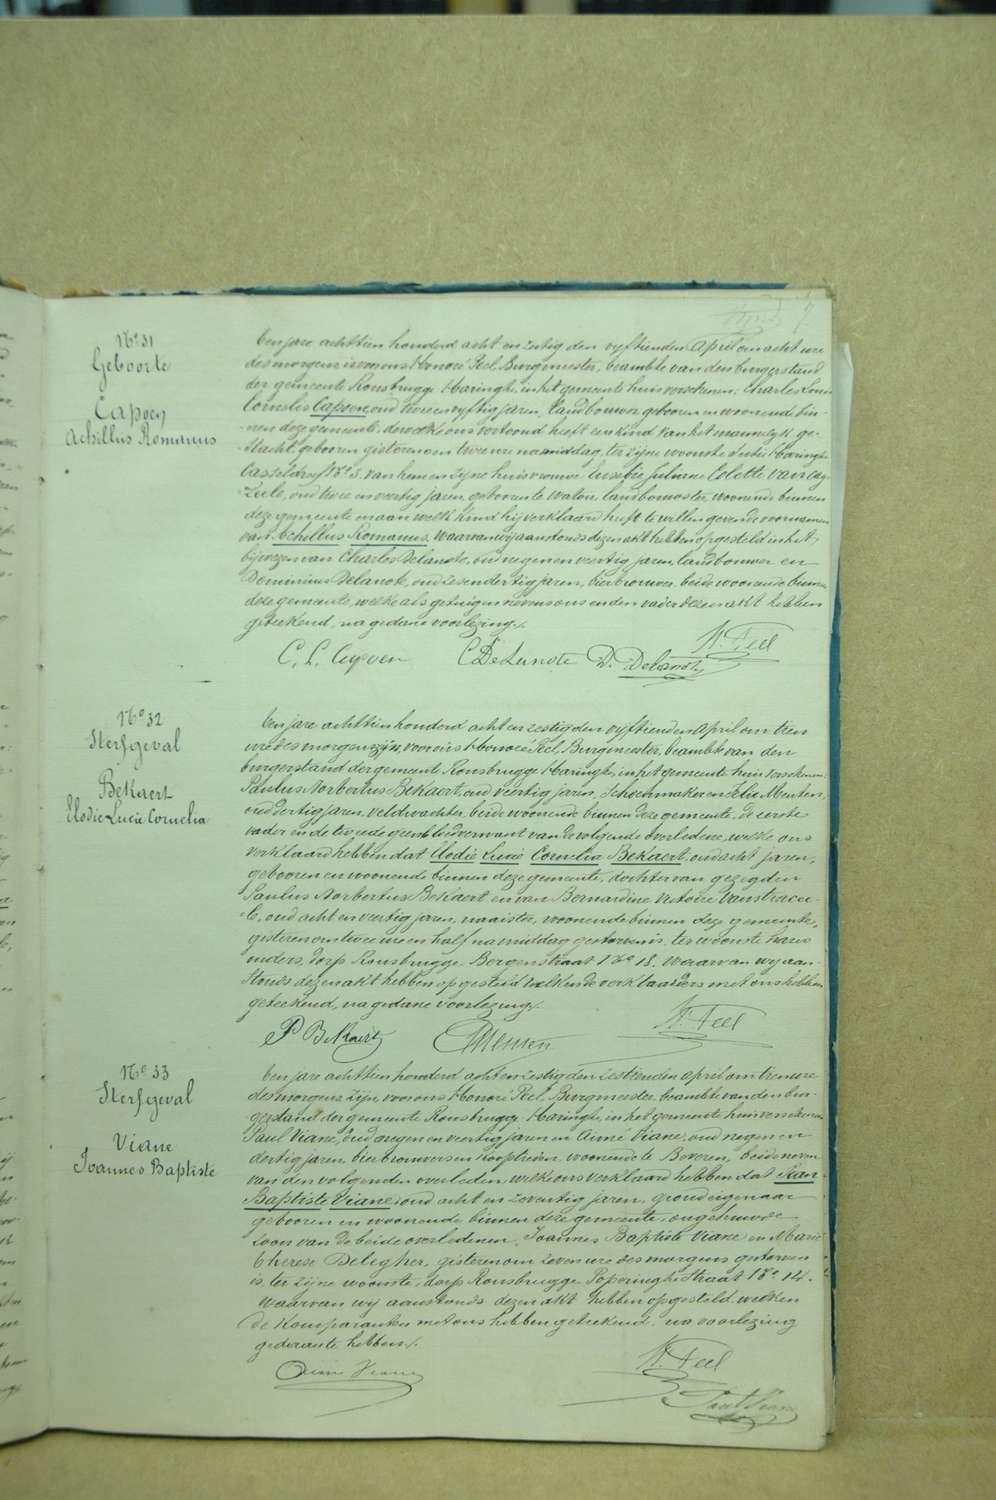 7
N° 31
Geboorte
Capoen
Achillus Romanus
Een jare achttien honderd acht en zestig den vyftienden April om acht ure
des morgens is voor ons Honoré Feel, Burgmeester, beambte van den burgerstand
der gemeente Rousbrugge Haringhe, in het gemeente huis verschenen: Charles Louis
Cornelis Capoen, oud twee en vyftig jaren, landbouwer geboren en woonende bin-
nen deze gemeente. dewelke ons vertoond heeft een kind van het mannelyk ge-
slacht, geboren gisteren om twee ure namiddag, ter zijne woonste sectie Haringhe
N° 3. van hem en zijne huisvrouwe Colette Van
oud twee en veertig jaren, geboren te Watou, landbouwster, woonende binnen
deze gemeente en aan welk kind hij verklaard heeft te willen geven de voornamen
van Achillus Romanus. Waarvan wij aanstonds dezen akt hebben opgesteld in het
bijwezen van Charles Delanote, oud negen en veertig jaren, landbouwer en
Dominicus Delanote, oud zes en dertig jaren, bierbrouwer, beide woonende binnen
deze gemeente, welke als getuigen nevens ons en den vader dezen akt hebben
geteekend, na gedane voorlezing.
H. Feel
C. L. Capoen C. DeLanote D. Delanote
N° 32
Sterfgeval
Bekaert
Elodie Lucie Cornelia
Een jare achttien honderd acht en zestig den vyftienden April om tien
ure des morgens zijn voor ons Honoré Feel, Burgmeester, beambte van den
burgerstand der gemeente Rousbrugge Haringhe, in het gemeente huis verschenen
Paulus Norbertus Bekaert, oud veertig jaren, schoenmaker en Felix
oud dertig jaren, veldwachter, beide woonende binnen deze gemeente, de eerste
vader en de tweede geen bloedverwant van de volgende overledene, welke ons
verklaard hebben dat Elodie Lucie Cornelia Bekaert, oud acht jaren,
geboren en woonende binnen deze gemeente, dochter van gezegden
Paulus Norbertus Bekaert en van Bernardine Victoire Vanstracee-
le, oud acht en veertig jaren, naaister, woonende binnen deze gemeente,
gisteren om twee ure en half namiddag gestorven is, ter woonste harer
ouders, dorp Rousbrugge Bergenstraat N° 18. Waarvan wij aan-
stonds dezen akt hebben opgesteld welken de verklaarders met ons hebben
geteekend, na gedane voorlezing.
H. Feel
P Bekaert
N° 33
Sterfgeval
Viane
Joannes Baptiste
Een jare achttien honderd acht en zestig den zestienden April om tien ure
des morgens zijn voor ons Honoré Feel, Burgmeester, beambte van den bur-
gerstand der gemeente Rousbrugge Haringhe, in het gemeente huis verschenen
Paul Viane, oud negen en veertig jaren en Aimé Viane, oud negen en
dertig jaren, bierbrouwers en woonende te Beveren, beide neven
van den volgenden overleden, welke ons verklaard hebben dat Jean
Baptiste Viane, oud acht en zeventig jaren, grondeigenaar
geboren en woonende binnen deze gemeente, ongehuwde
zoon van de beide overledenen, Joannes Baptiste Viane en Marie
Therese Delegher, gisteren om zeven ure des morgens gestorven
is, ter zijne woonste, dorp Rousbrugge Poperinghe Straat N° 14.
Waarvan wij aanstonds dezen akt hebben opgesteld, welken
de komparanten met ons hebben geteekend, na voorlezing
gedaante hebben.
H. Feel
Aimé Viane
Paul Viane